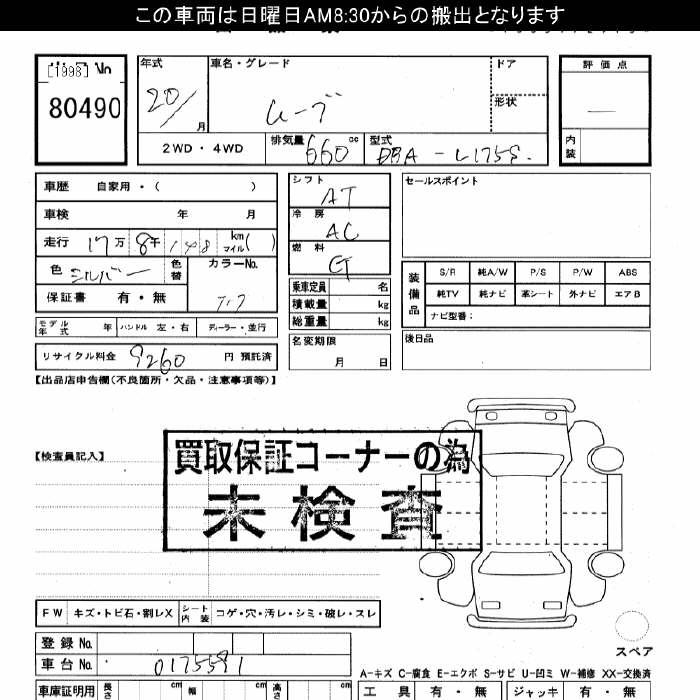 この車両は日曜日AM8:30からの搬出となります
[1998] No
80490
年式
20/
月
車名・グレード
ムーブ
ドア
形状
評価点
内装
2WD・4WD
排気量 660 cc
型式 DBA-L175S.
車歴 自家用・( )
車検 年 月
走行 17万 8千 148 km マイル( )
色 シルバー
色替
カラーNo.
保証書 有・無
モデル年式 年
ハンドル 左・右
ディーラー・並行
リサイクル料金 9260 円 預託済
シフト AT
冷房 AC
燃料 G
乗車定員 名
積載量 kg
総重量 kg
名変期限
月 日
セールスポイント
装備品
S/R 純A/W P/S P/W ABS
純TV 純ナビ 革シート 外ナビ エアB
ナビ型番:
後日品
【出品店申告欄(不良箇所・欠品・注意事項等)】
【検査員記入】
買取保証コーナーの為
未検査
FW キズ・トビ石・割レX
シート内装 コゲ・穴・汚レ・シミ・破レ・スレ
スペア
登録No.
車台No. 0175591
A-キズ C-腐食 E-エクボ S-サビ U-凹ミ W-補修 XX-交換済
車庫証明用 長さ cm 幅 cm 高さ cm
工具 有・無 ジャッキ 有・無